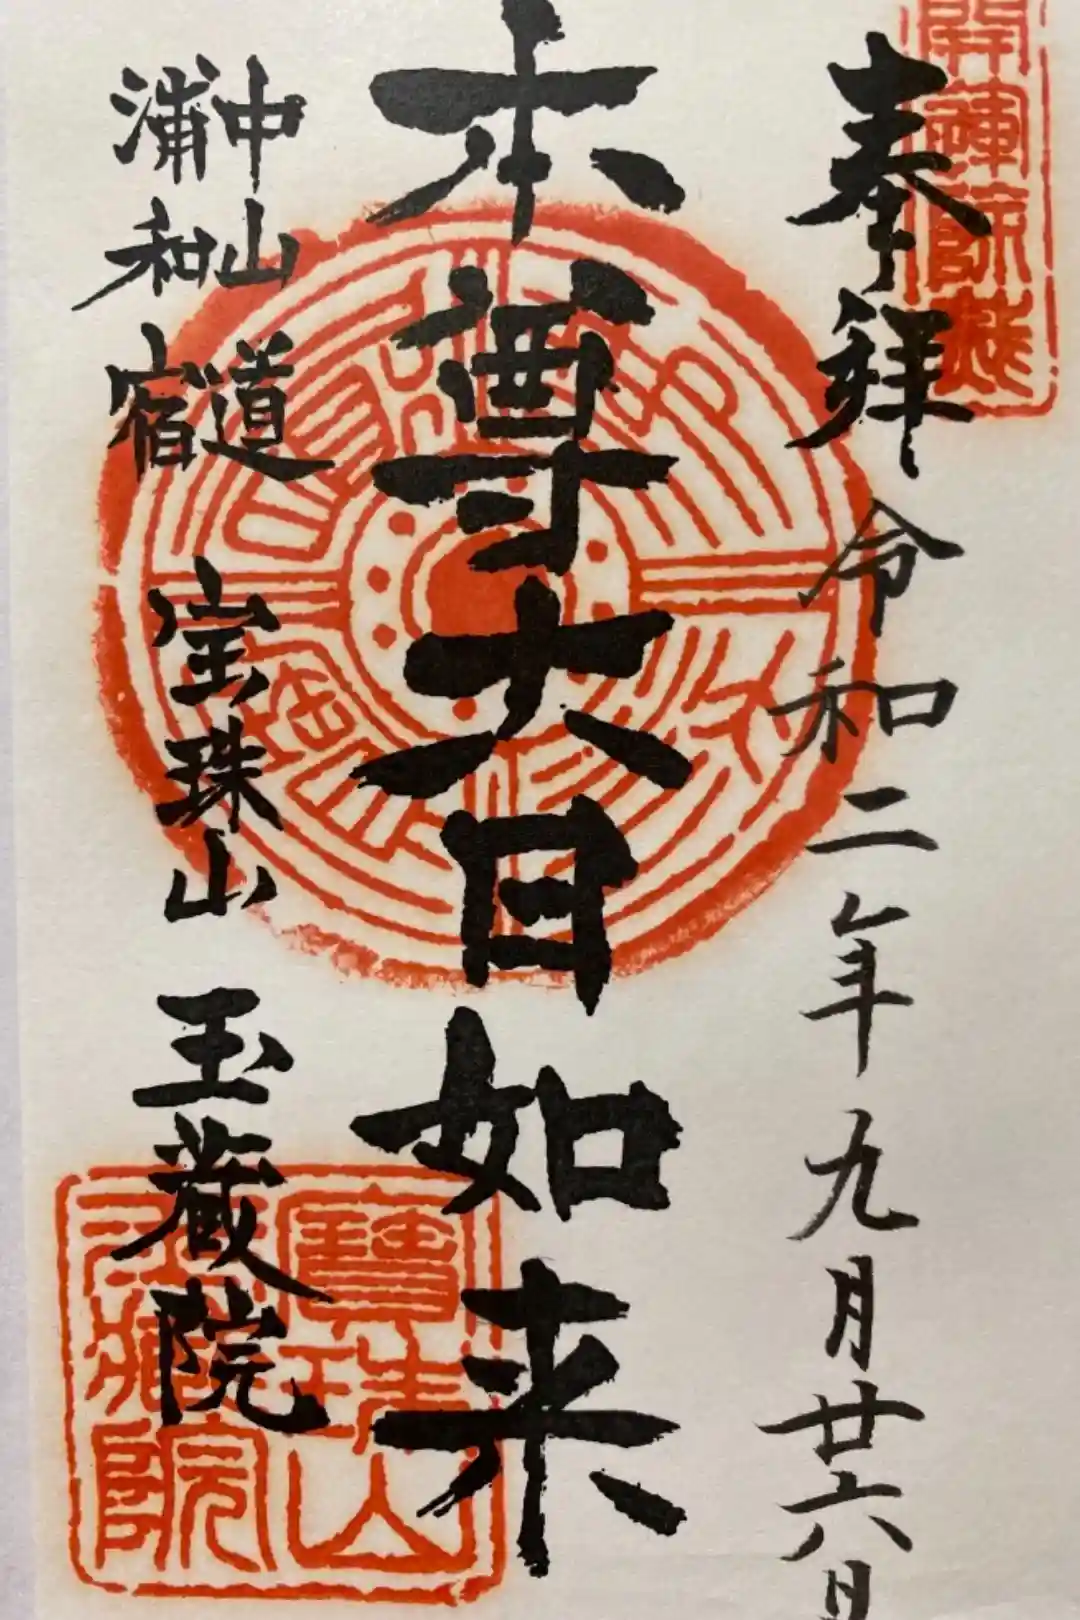 奉拝
令和二年九月廿六日
本尊大日如来
中山道
浦和宿
宝珠山
玉蔵院
寶珠山
玉蔵院